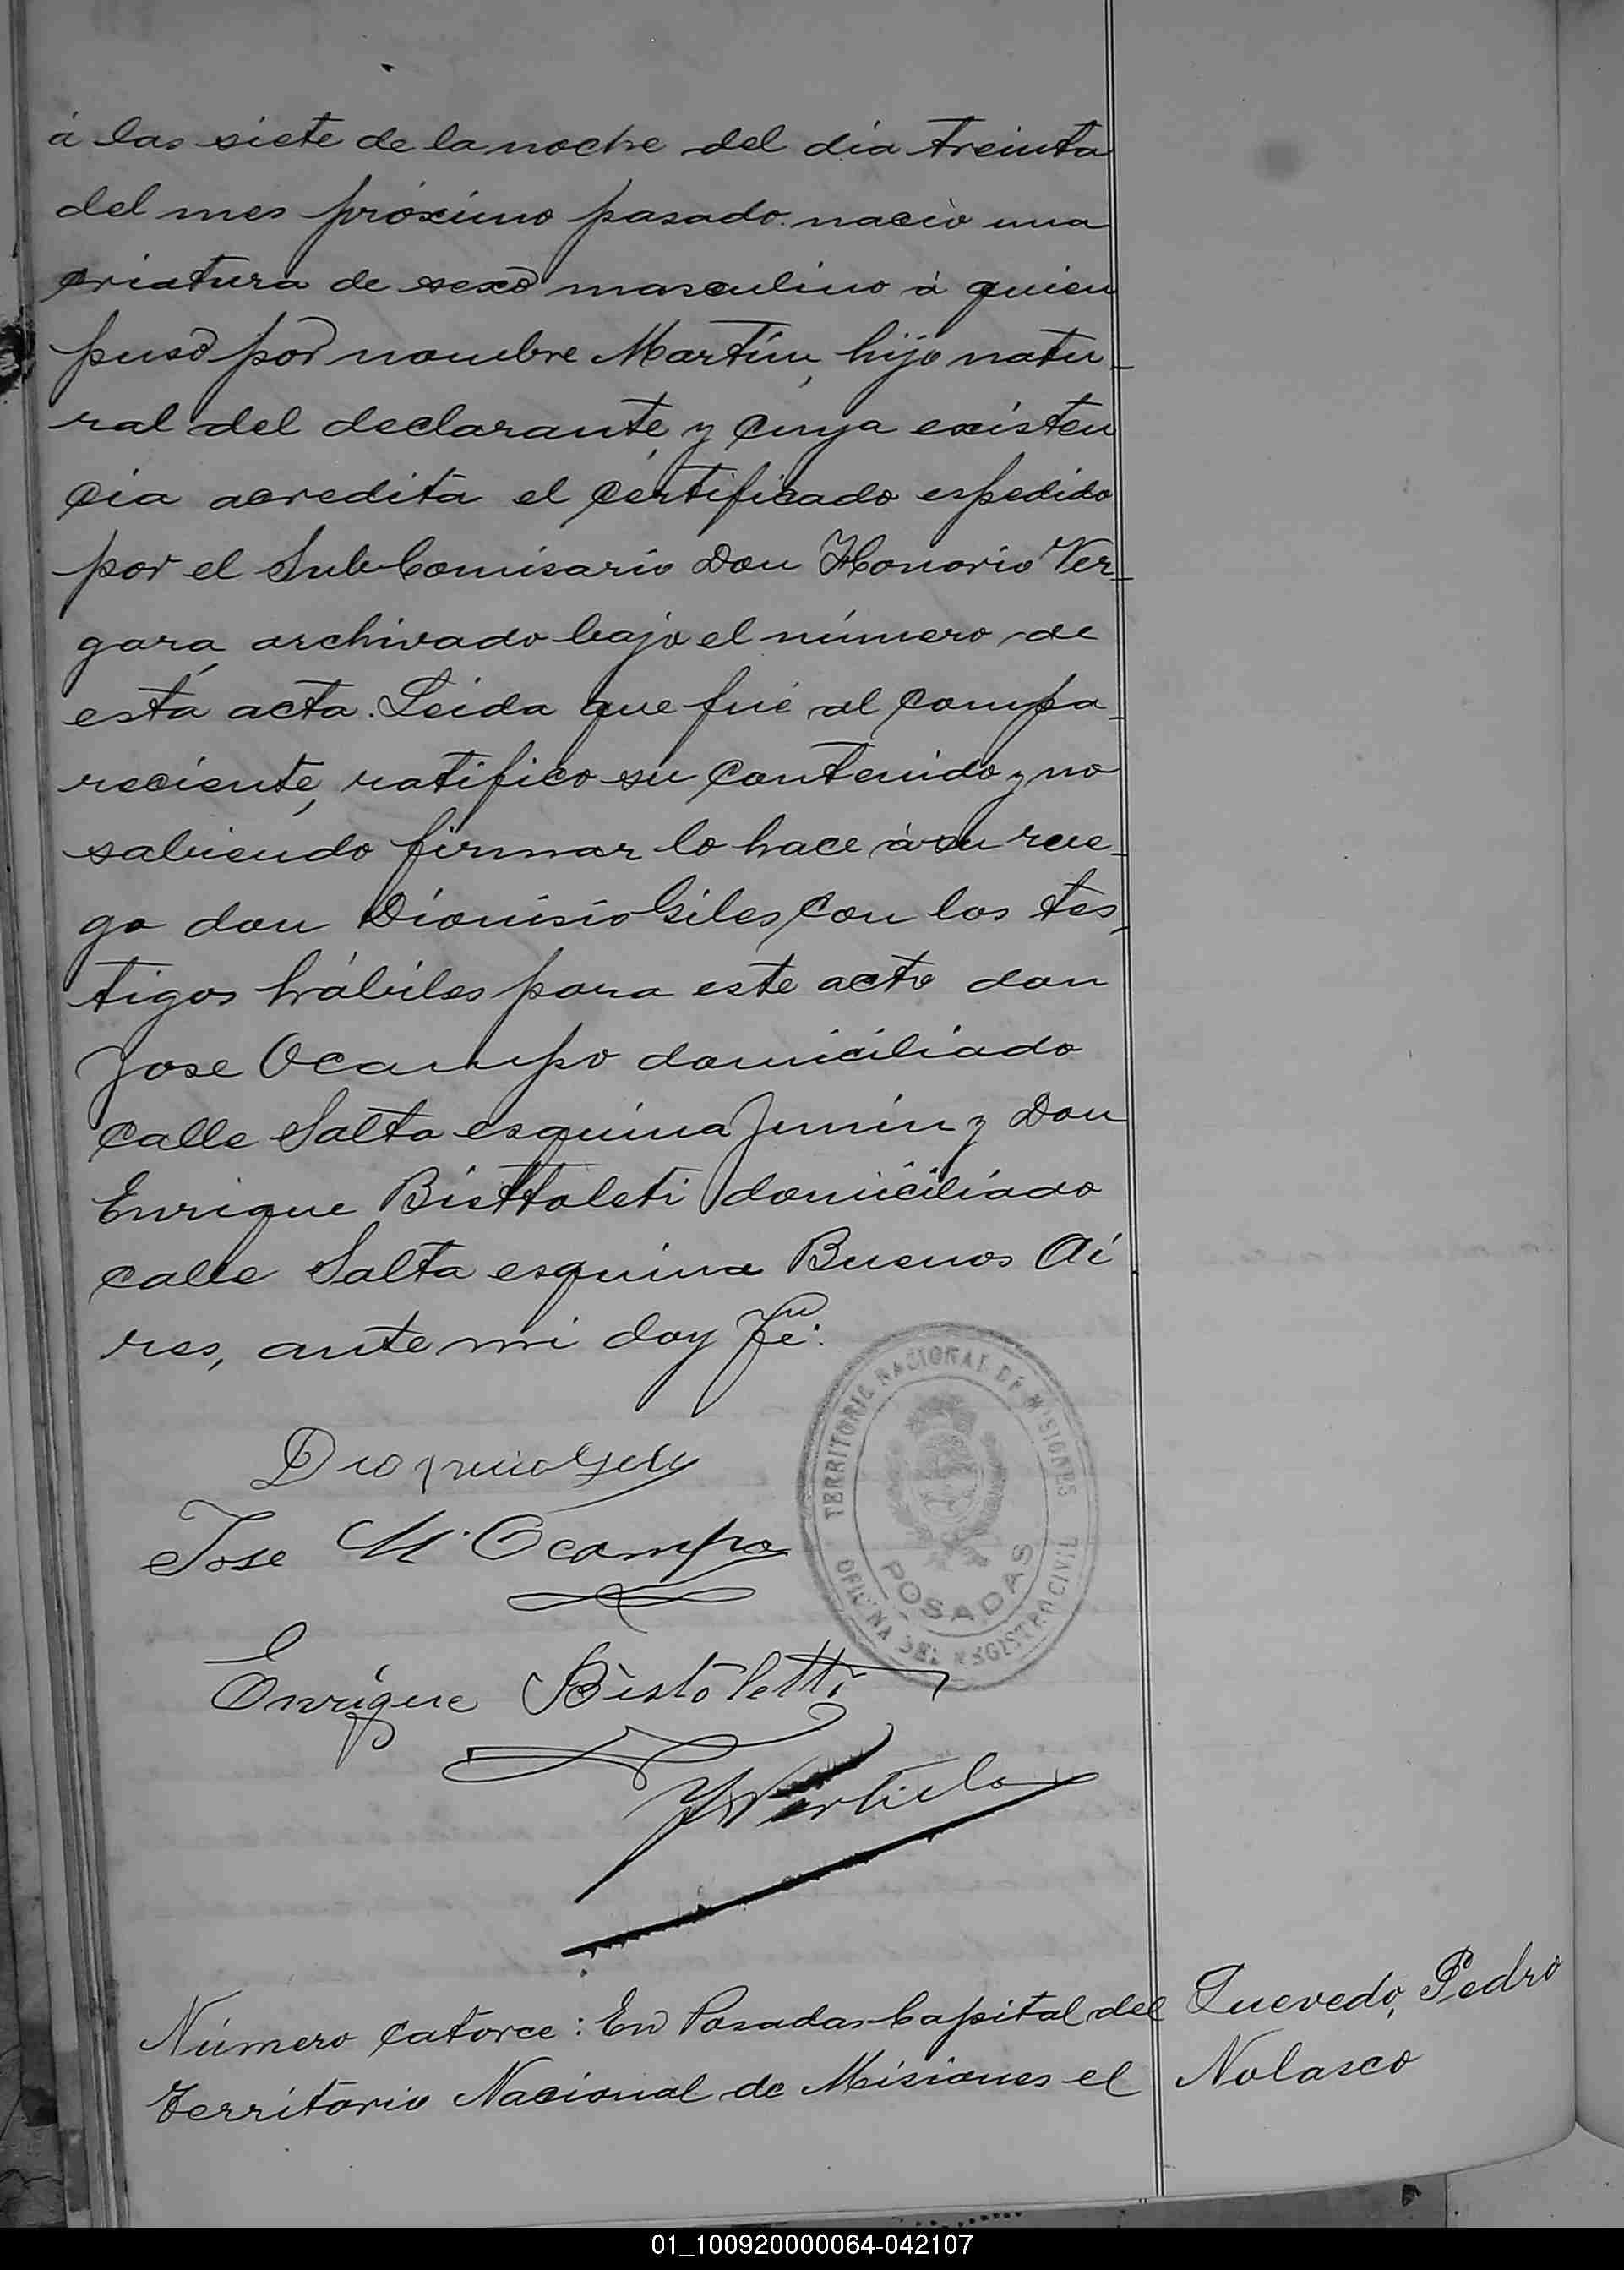 á las siete de la noche del dia treinta
del mes próximo pasado nació una
criatura de sexo masculino á quien
puso por nombre Martín, hijo natu-
ral del declarante, y cuya existen
cia acredita el certificado espedido
por el Sub-Comisario Don Honorio Ver-
gara, archivado bajo el número de
esta acta. Leida que fué al compa-
reciente, ratifico su contenido y no
sabiendo firmar lo hace á su rue-
go don Dionisio Giles, con los tes-
tigos hábiles para este acto don
Jose Ocampo domiciliado
calle Salta esquina Junín y Don
Enrique Bisttoleti domiciliado
calle Salta esquina Buenos Ai
res, ante mi doy Fé.
Jose M. Ocampo
Enrique Bistoletti
TERRITORIO NACIONAL DE MISIONES
POSADAS
OFICINA DEL REGISTRO CIVIL
Número catorce: En Posadas Capital del
Territorio Nacional de Misiones el
Quevedo, Pedro
Nolasco
01_100920000064-042107